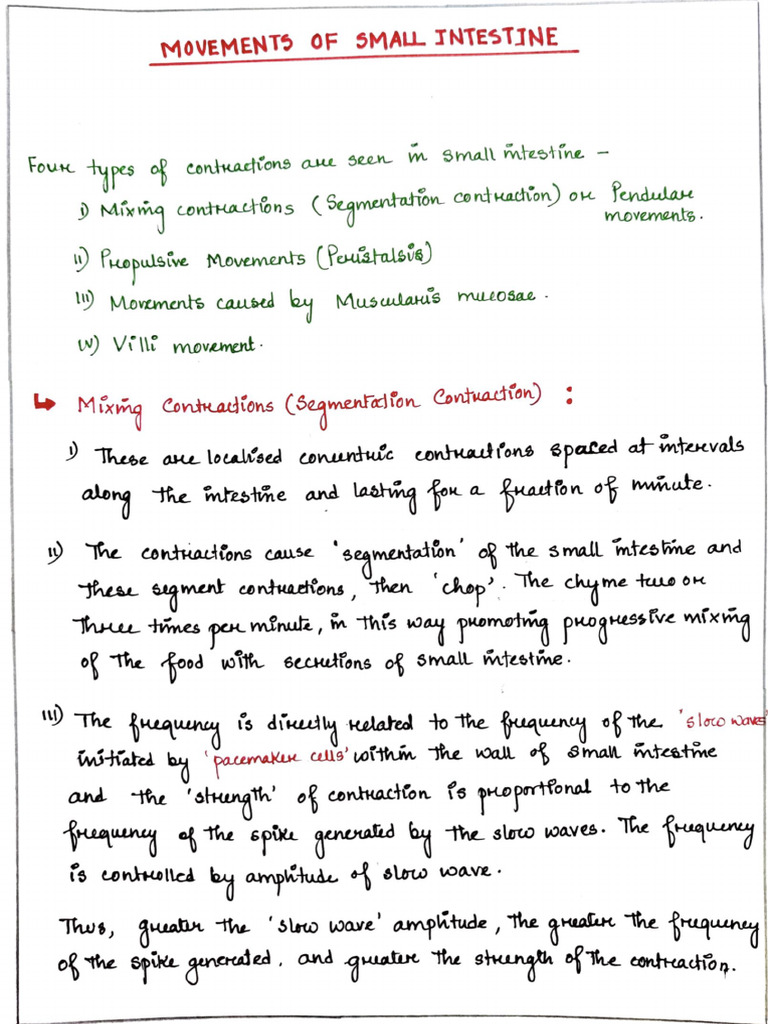 MOVEMENTS OF SMALL INTESTINE
Four types of contractions are seen in small intestine –
i) Mixing contractions (Segmentation contraction) or Pendular
movements.
ii) Propulsive Movements (Peristalsis)
iii) Movements caused by Muscularis mucosae.
iv) Villi movement.
↳ Mixing Contractions (Segmentation Contraction) :
i) These are localised concentric contractions spaced at intervals
along the intestine and lasting for a fraction of minute.
ii) The contractions cause 'segmentation' of the small intestine and
these segment contractions, then 'chop'. The chyme two or
three times per minute, in this way promoting progressive mixing
of the food with secretions of small intestine.
iii) The frequency is directly related to the frequency of the 'slow waves'
initiated by 'pacemaker cells' within the wall of small intestine
and the 'strength' of contraction is proportional to the
frequency of the spike generated by the slow waves. The frequency
is controlled by amplitude of slow wave.
Thus, greater the 'slow wave' amplitude, the greater the frequency
of the spike generated. and greater the strength of the contraction.